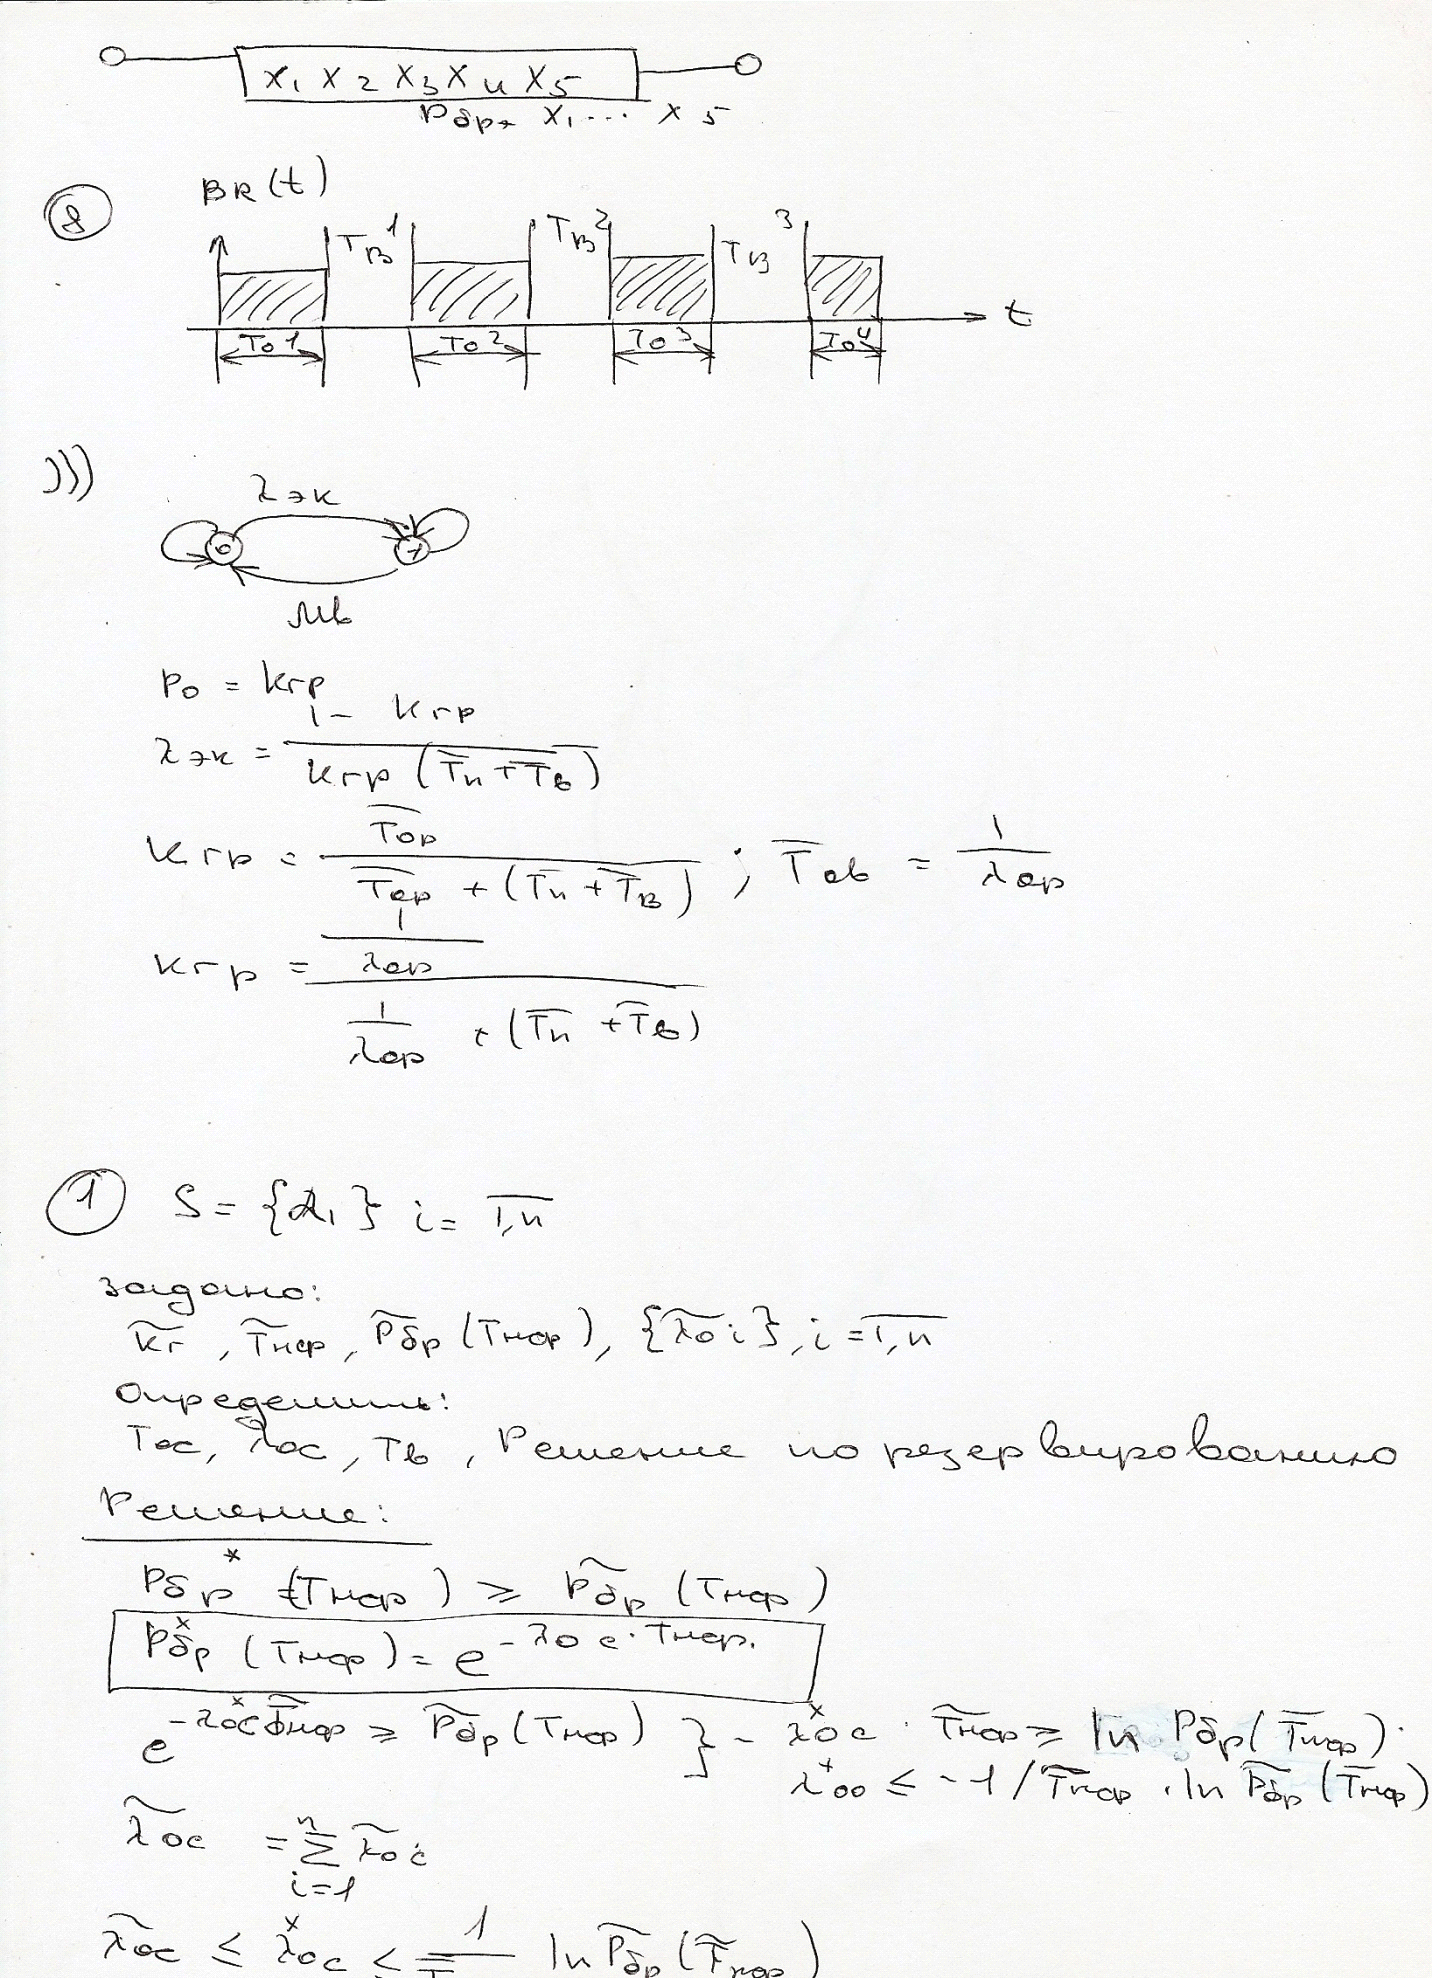 x₁ x₂ x₃ x₄ x₅
Pбр = x₁ ... x₅
8
BR(t)
Tв1 Tв2 Tв3
t
To1 To2 To3 To4
)))
λэк
0 1
Mв
Po = Kгр
λэк = (1 - Kгр) / (Kгр (T̅п + T̅в))
Kгр = T̅ор / (T̅ор + (T̅п + T̅в)) ; T̅ов = 1 / λор
Kгр = (1/λор) / (1/λор + (T̅п + T̅в))
1 S = {α₁} i = 1,n
Задано:
K̃г , T̃нор, P̃бр (Tнор), {λ̃оi}, i = 1,n
Определить:
Tос, λос, Tв, Решение по резервированию
Решение:
Pбр* (Tнор) ≥ P̃бр (Tнор)
Pбр* (Tнор) = e^(-λос · Tнор.)
e^(-λ*ос T̃нор) ≥ P̃бр (Tнор) } - λ*ос · T̃нор ≥ ln Pбр (T̃нор).
λ*оо ≤ -1 / T̃нор · ln P̃бр (T̃нор)
λ̃ос = Σ(i=1, n) λ̃оi
λ̃ос ≤ λ*ос ≤ - 1/T ln P̃бр (T̃нор)